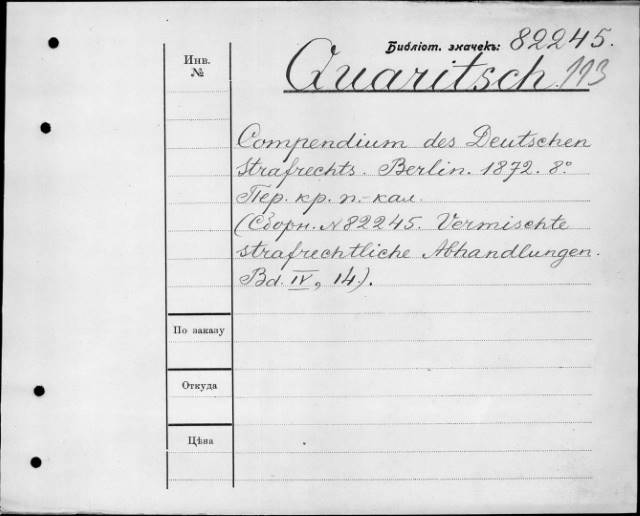 Библіот. значекъ: 82245.
Инв. №
Quaritsch. 113
Compendium des Deutschen
Strafrechts. Berlin. 1872. 8º
Пер. кр. п.-кал.
(Сборн. № 82245. Vermischte
strafrechtliche Abhandlungen.
Bd. IV, 14).
По заказу
Откуда
Цѣна